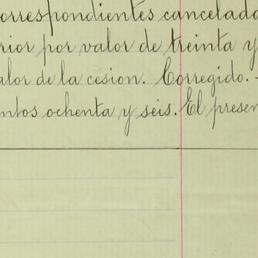 correspondientes cancelado
rior por valor de treinta y
alor de la cesion. Corregido.-
entos ochenta y seis. El presen